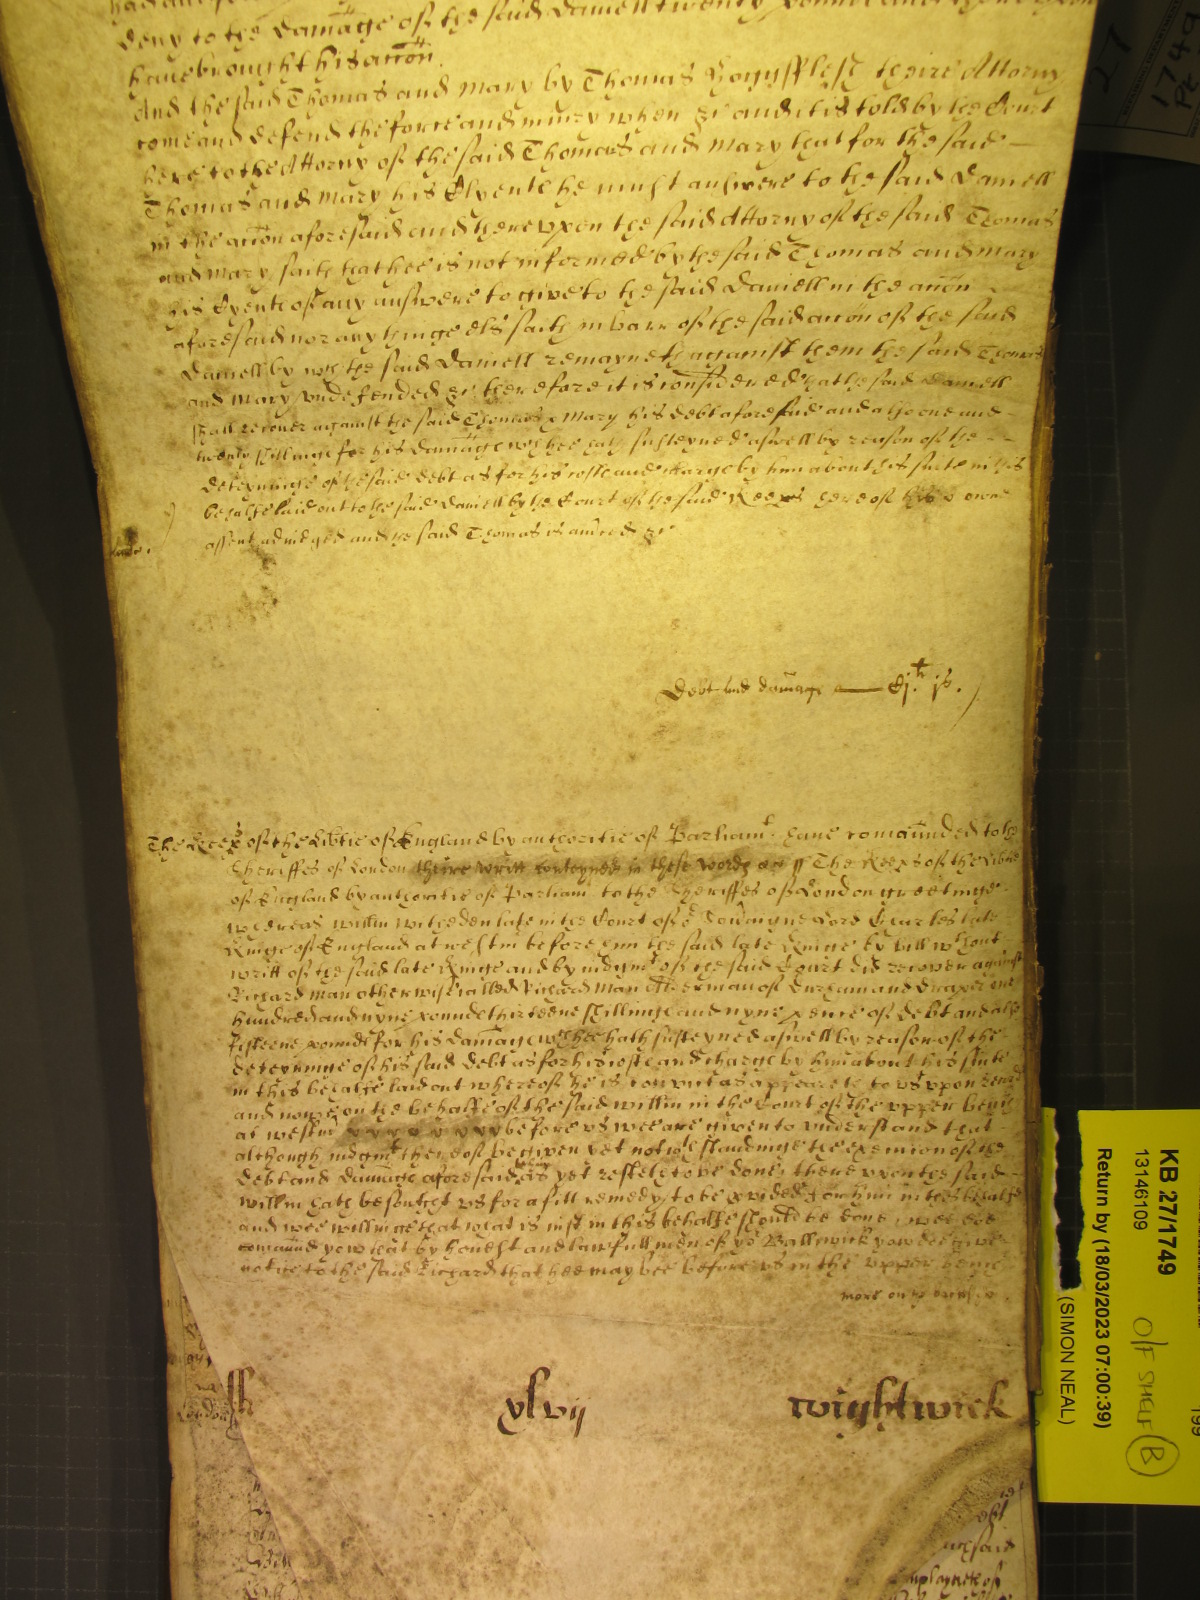 deny to the damage of the said Daniell twenty pound and thereupon
have brought his accon.
And the said Thomas and Mary by Thomas theire Attorny
come and defend the force and iniury when &c and it is told by the Court
here to the Attorny of the said Thomas and Mary that for the said
Thomas and Mary his Clyente he must answere to the said Daniell
in the accon aforesaid and hereupon the said Attorny of the said Thomas
and Mary saith that hee is not informed by the said Thomas and Mary
his Clyente of any answere to give to the said Daniell in the accon
aforesaid nor any thinge els saith in barr of the said accon of the said
Daniell by wch the said Daniell remayneth against them the said Thomas
and Mary undefended &c therefore it is considered that the said Daniell
shall recover against the said Thomas & Mary his debt aforesaid and also one and
twenty shillinge for his damage wch hee hath susteyned aswell by reason of the
deteyninge of the said debt as for his coste and charge by him about his suite in this
behalfe laid out to the said Daniell by the Court of the said Keeps here of his owne
assent adiudged and the said Thomas is amced &c
Debt and damage Cj.li js.
The Keeps of the Libtie of England by authoritie of Parliamt. have comaunded to the
Sheriffes of London theire writt conteyned in these words ss The Keeps of the Libtie
of England by authoritie of Parliamt to the Sheriffes of London greetinge
whereas Willm Witheden late in the Court of or Soveraigne Lord Charles late
Kinge of England at Westm before him the said late Kinge by bill wthout
writt of the said late Kinge and by iudgmt of the said Court did recover against
Richard Man otherwise called Richard Man Alderman of Durham and Draper one
hundred and nyne pounde thirteene shillinge and nyne pence of debt and also
fifteene pounde for his damage wch hee hath susteyned aswell by reason of the
deteyninge of his said debt as for his coste and charge by him about his suite
in this behalfe laid out whereof he is convict as appeareth to us upon record
and nowe on the behalfe of the said Willm in the Court of the upper bench
at Westm before us wee are given to understand that
although iudgmt thereof be given yet notwthstandinge the execucon of the
debt and damage aforesaid yet resteth to be done thereupon the said
Willm hath besought us for a fitt remedy to be pvided for him in this behalfe
and wee willinge that what is iust in this behalfe should be done wee doe
comaund yow that by honest and lawfull men of yor Balliwick yow doe give
notice to the said Richard that hee may bee before us in the upper bench
more on ye
London ss
xlvij
Wightwick
KB 27/1749
13146109
Return by (18/03/2023 07:00:39)
(SIMON NEAL)
O/F SHELF
B
27
1749